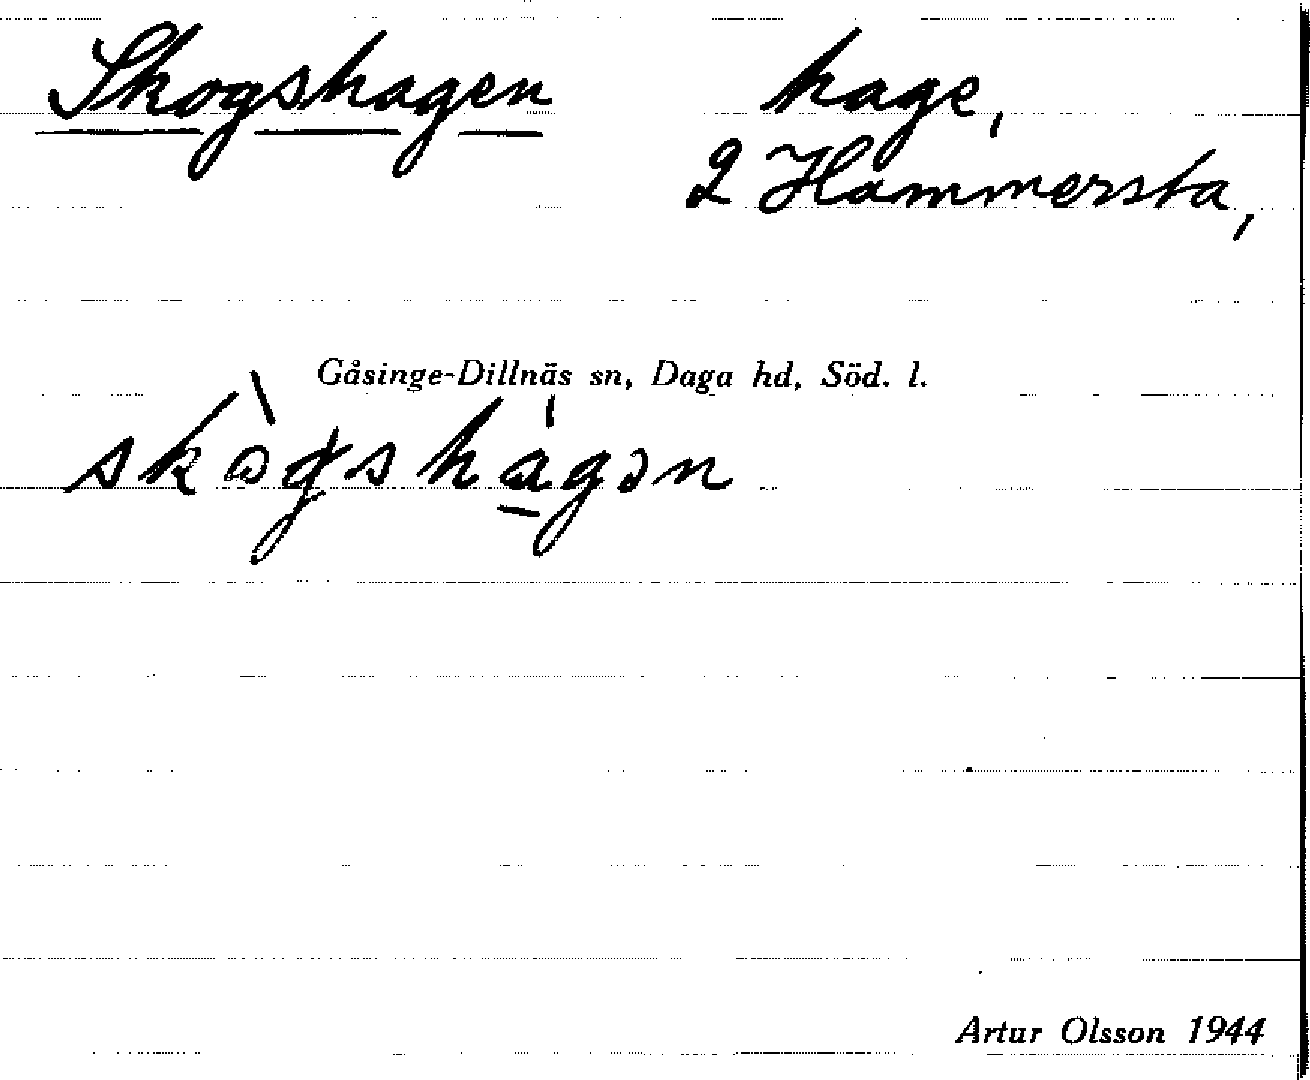 Skogshagen hage,
2 Hammersta,
Gåsinge-Dillnäs sn, Daga hd, Söd. l.
skò̀gshá̱gən
Artur Olsson 1944